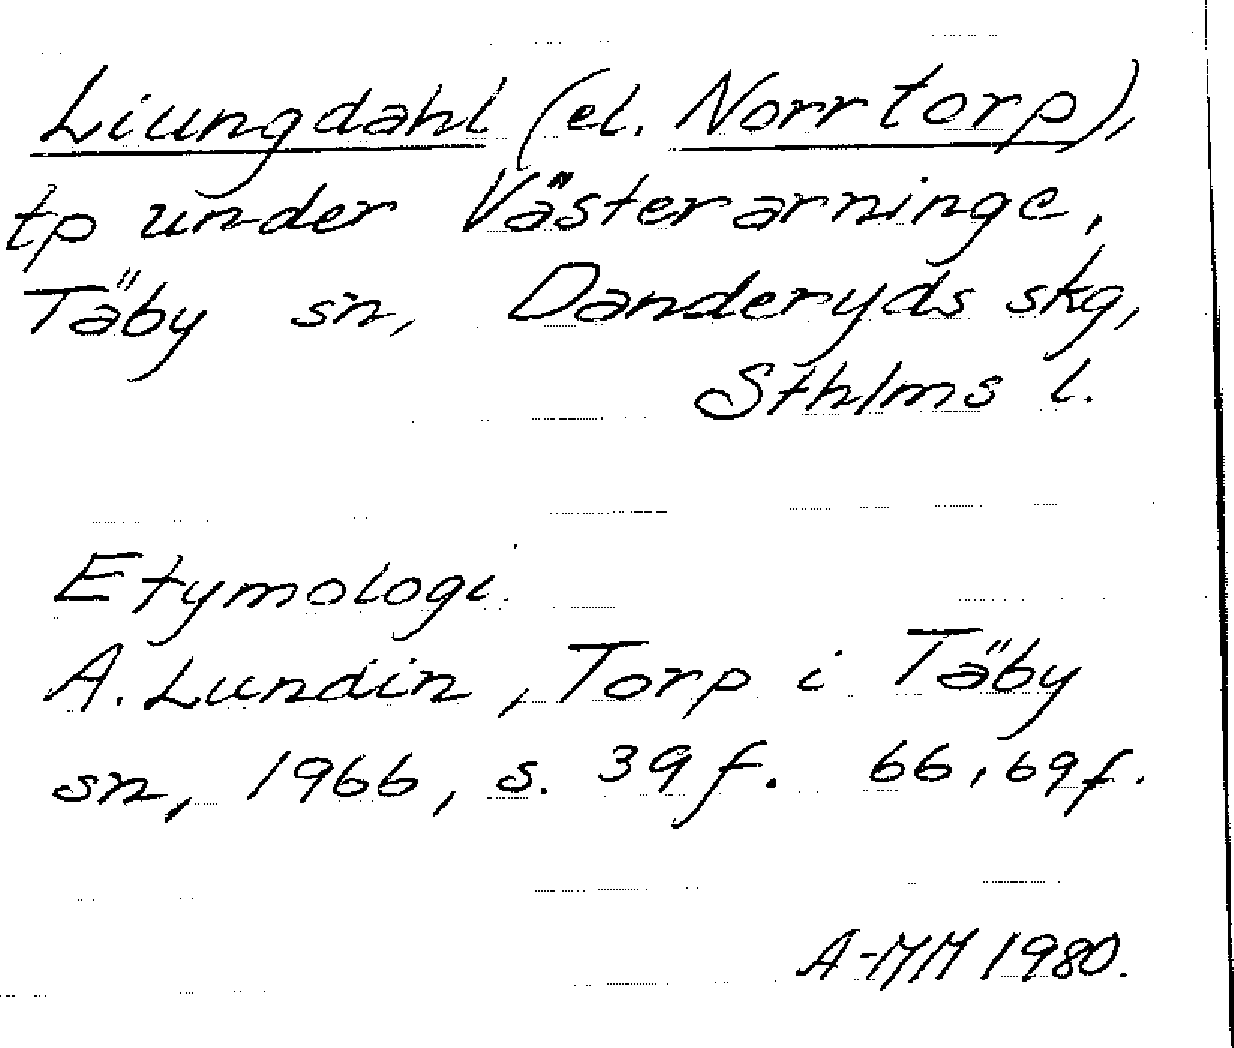 Liungdahl (el. Norrtorp),
tp under Västerarninge,
Täby sn, Danderyds skg,
Sthlms l.
Etymologi.
A. Lundin, Torp i Täby
sn, 1966, s. 39 f. 66, 69 f.
A-MM 1980.